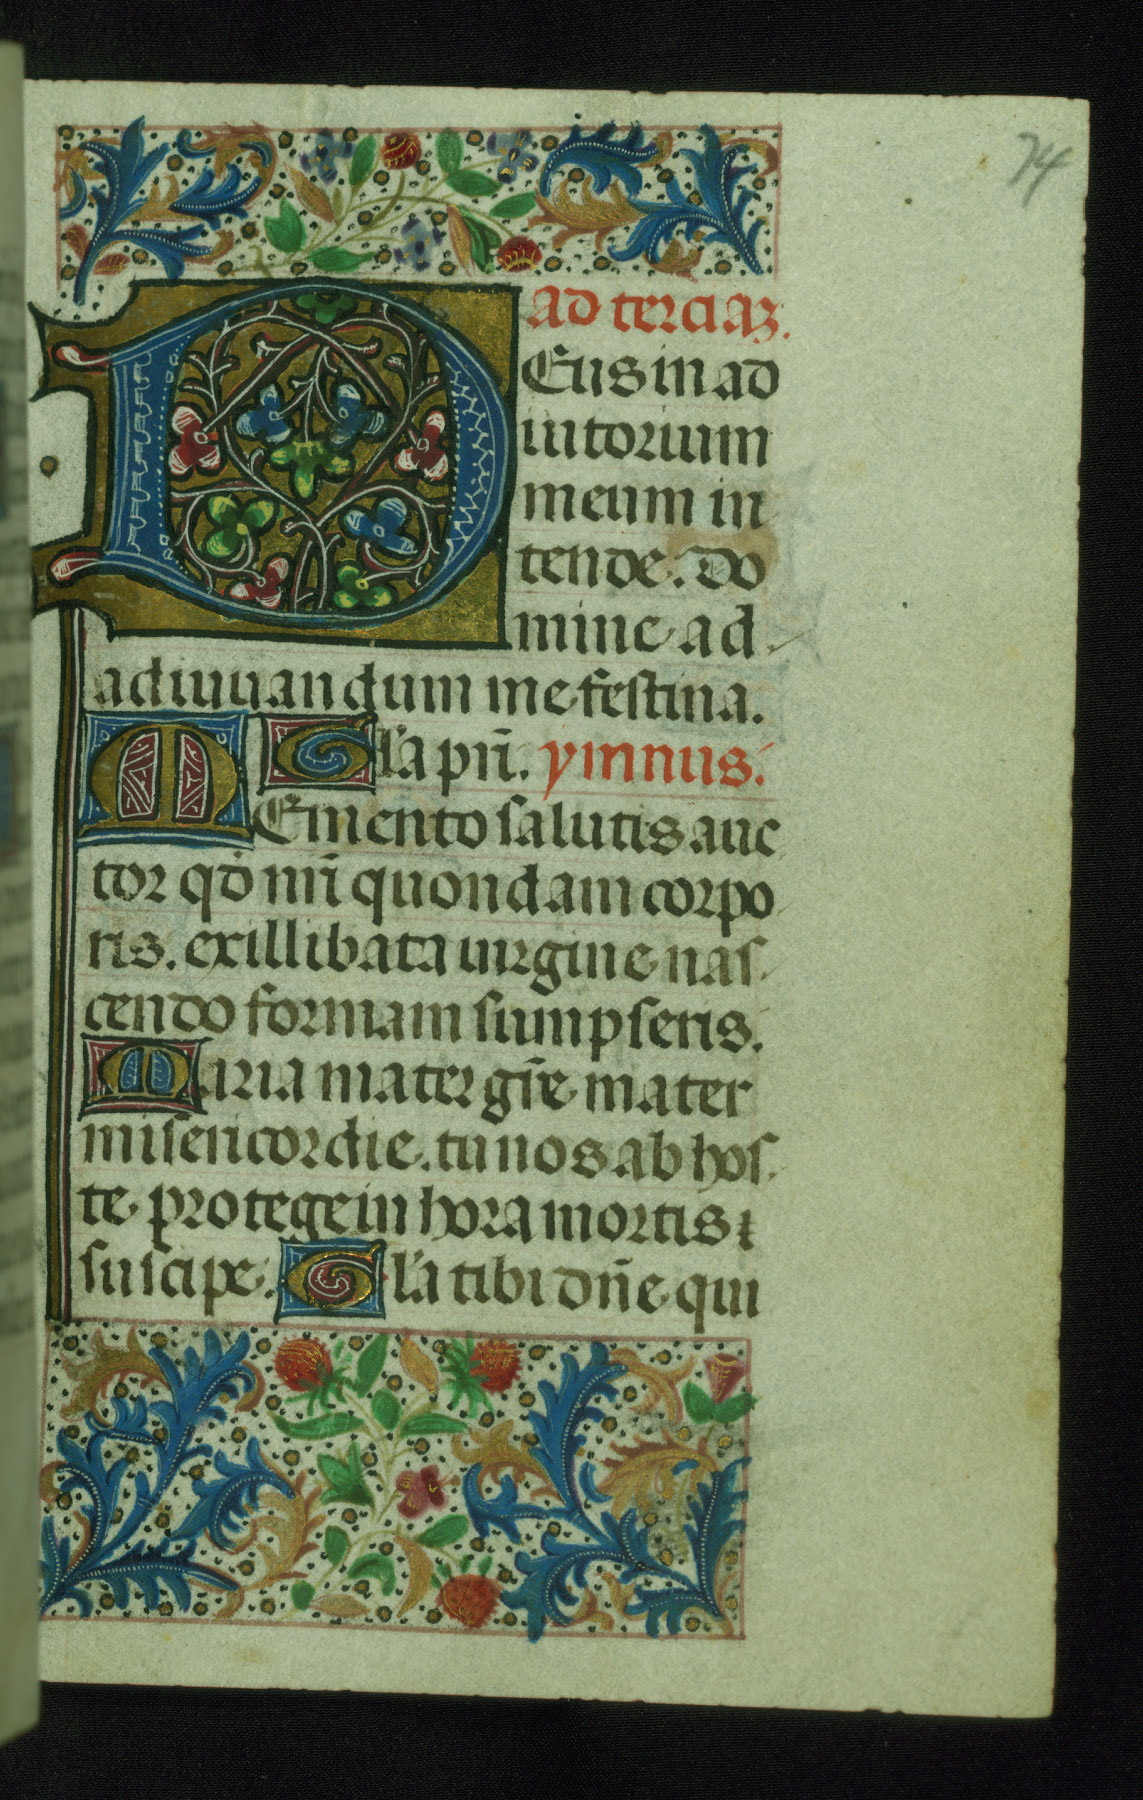 74
ad terciaꝫ.
DEus in ad
iutorium
meum in
tende. Do
mine ad
adiuuandum me festina.
Gl'a pr̄i. ymnus.
MEmento salutis auc
tor qd̄ nr̄i quondam corpo
ris. ex illibata uirgine nas
cendo formam sumpseris.
Maria mater gr̄e mater
misericordie. tu nos ab hos
te protege in hora mortis ⁊
suscipe. Gl'a tibi dn̄e qui